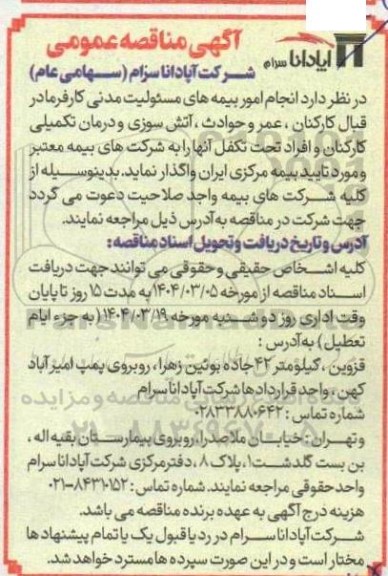 آپادانا سرام
آگهی مناقصه عمومی
شرکت آپادانا سرام (سهامی عام)
در نظر دارد انجام امور بیمه های مسئولیت مدنی کارفرما در
قبال کارکنان ، عمر و حوادث ، آتش سوزی و درمان تکمیلی
کارکنان و افراد تحت تکفل آنها را به شرکت های بیمه معتبر
و مورد تایید بیمه مرکزی ایران واگذار نماید. بدینوسیله از
کلیه شرکت های بیمه واجد صلاحیت دعوت می گردد
جهت شرکت در مناقصه به آدرس ذیل مراجعه نمایند.
آدرس و تاریخ دریافت و تحویل اسناد مناقصه :
کلیه اشخاص حقیقی و حقوقی می توانند جهت دریافت
اسناد مناقصه از مورخه ۱۴۰۴/۰۳/۰۵ به مدت ۱۵ روز تا پایان
وقت اداری روز دوشنبه مورخه ۱۴۰۴/۰۳/۱۹ ( به جزء ایام
تعطیل) به آدرس :
قزوین ، کیلومتر ۴۲ جاده بوئین زهرا ، روبروی پمپ امیر آباد
کهن ، واحد قراردادها شرکت آپادانا سرام
شماره تماس : ۰۲۸۳۳۸۸۰۶۴۲
و تهران : خیابان ملاصدرا، روبروی بیمارستان بقیه اله ،
بن بست گلدشت۱، پلاک ۸ ، دفتر مرکزی شرکت آپادانا سرام
واحد حقوقی مراجعه نمایند. شماره تماس : ۸۴۳۱۰۱۵۲-۰۲۱
هزینه درج آگهی به عهده برنده مناقصه می باشد.
شرکت آپادانا سرام در رد یا قبول یک یا تمام پیشنهادها
مختار است و در این صورت سپرده ها مسترد خواهد شد.